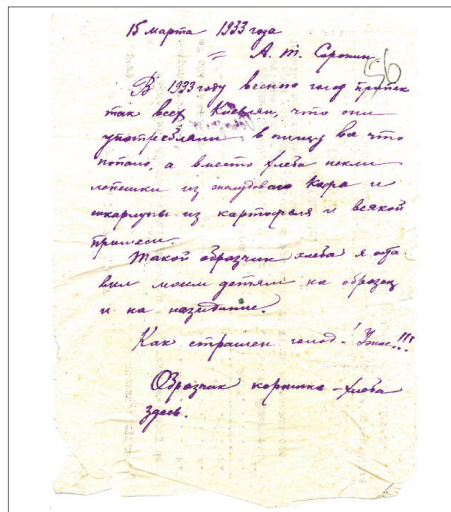 15 марта 1933 года
= А. М. Сорокин
56
В 1933 году весною голод
так всех Киевлян, что они
употребляли в пищу все что
попало, а вместо хлеба пекли
лепешки из желудового кофе и
шкарлупы из картофеля и всякой
примеси.
Такой образчик хлеба я оста
вил моим детям на образец
и на назидание.
Как страшен голод! Ужас!!!
Образчик коржика - хлеба
здесь.